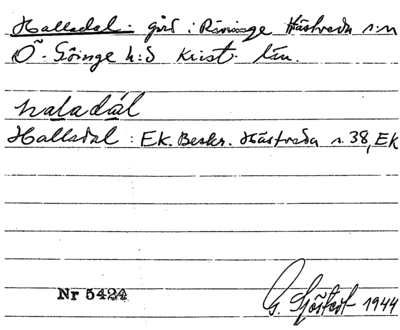 Halladal. gård i Hästveda s:n
Ö. Göinge h:d Krist. län.
haladál
Halladal: Ek. Beskr. Hästveda s. 38, EK
Nr 5424
G. Sjöstedt 1944